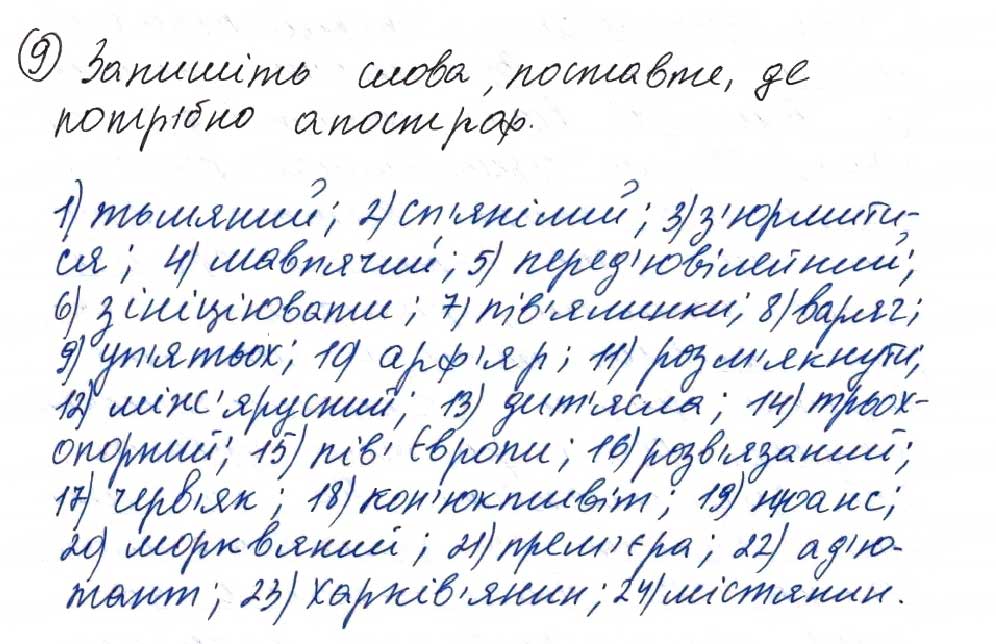 9 Запишіть слова, поставте, де
потрібно апостроф.
1) тьмяний; 2) сп'янілий; 3) з'юрмити-
ся; 4) мавпячий; 5) перед'ювілейний;
6) зініціювати; 7) пів'ялинки; 8) варяг;
9) уп'ятьох; 10) арф'яр; 11) розм'якнути;
12) між'ярусний; 13) дит'ясла; 14) трьох-
опорний; 15) пів'Європи; 16) розв'язаний;
17) черв'як; 18) кон'юктивіт; 19) нюанс;
20) морквяний; 21) прем'єра; 22) ад'ю-
тант; 23) харків'янин; 24) містянин.